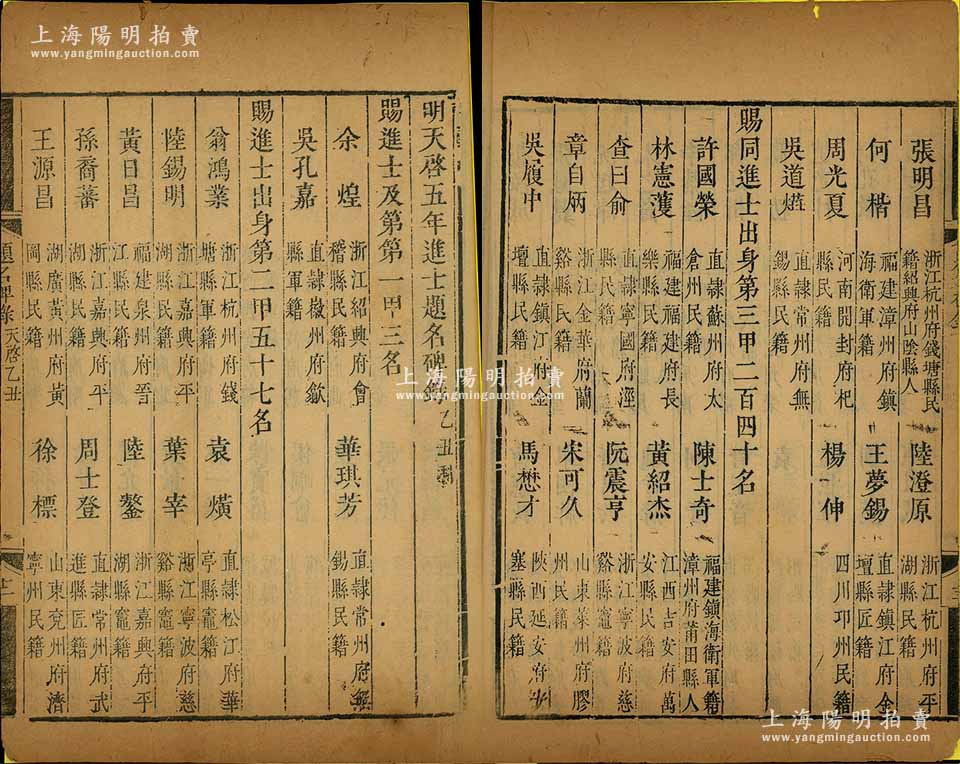 上海陽明拍賣
www.yangmingauction.com
張明昌 浙江杭州府錢塘縣民籍紹興府山陰縣人 陸澄原 浙江杭州府平湖縣民籍
何楷 福建漳州府鎮海衛軍籍 王夢錫 直隸鎮江府金壇縣匠籍
周光夏 河南開封府杞縣民籍 楊伸 四川邛州民籍
吳道 直隸常州府無錫縣民籍
賜同進士出身第三甲二百四十名
許國榮 直隸蘇州府太倉州民籍 陳士奇 福建鎮海衛軍籍漳州府莆田縣人
林憲濩 福建福建府長樂縣民籍 黃紹杰 江西吉安府萬安縣民籍
查曰俞 直隸寧國府涇縣民籍 阮震亨 浙江寧波府慈谿縣竈籍
章自炳 浙江金華府蘭谿縣民籍 宋可久 山東萊州府膠州民籍
吳履中 直隸鎮江府金壇縣民籍 馬懋才 陝西延安府安塞縣民籍
明天啓五年進士題名碑錄 乙丑科
賜進士及第第一甲三名
余煌 浙江紹興府會稽縣民籍 華琪芳 直隸常州府無錫縣民籍
吳孔嘉 直隸徽州府歙縣軍籍
賜進士出身第二甲五十七名
翁鴻業 浙江杭州府錢塘縣軍籍 袁熿 直隸松江府華亭縣竈籍
陸錫明 浙江嘉興府平湖縣軍籍 葉宰 浙江寧波府慈谿縣竈籍
黃日昌 福建泉州府晉江縣民籍 陸鏊 浙江嘉興府平湖縣竈籍
孫裔蕃 浙江嘉興府平湖縣民籍 周士登 直隸常州府武進縣匠籍
王源昌 湖廣黃州府黃岡縣民籍 徐標 山東兗州府濟寧州民籍
題名碑錄 天啓乙丑 上
上海陽明拍賣
www.yangmingauction.com
上海陽明拍賣
www.yangmingauction.com